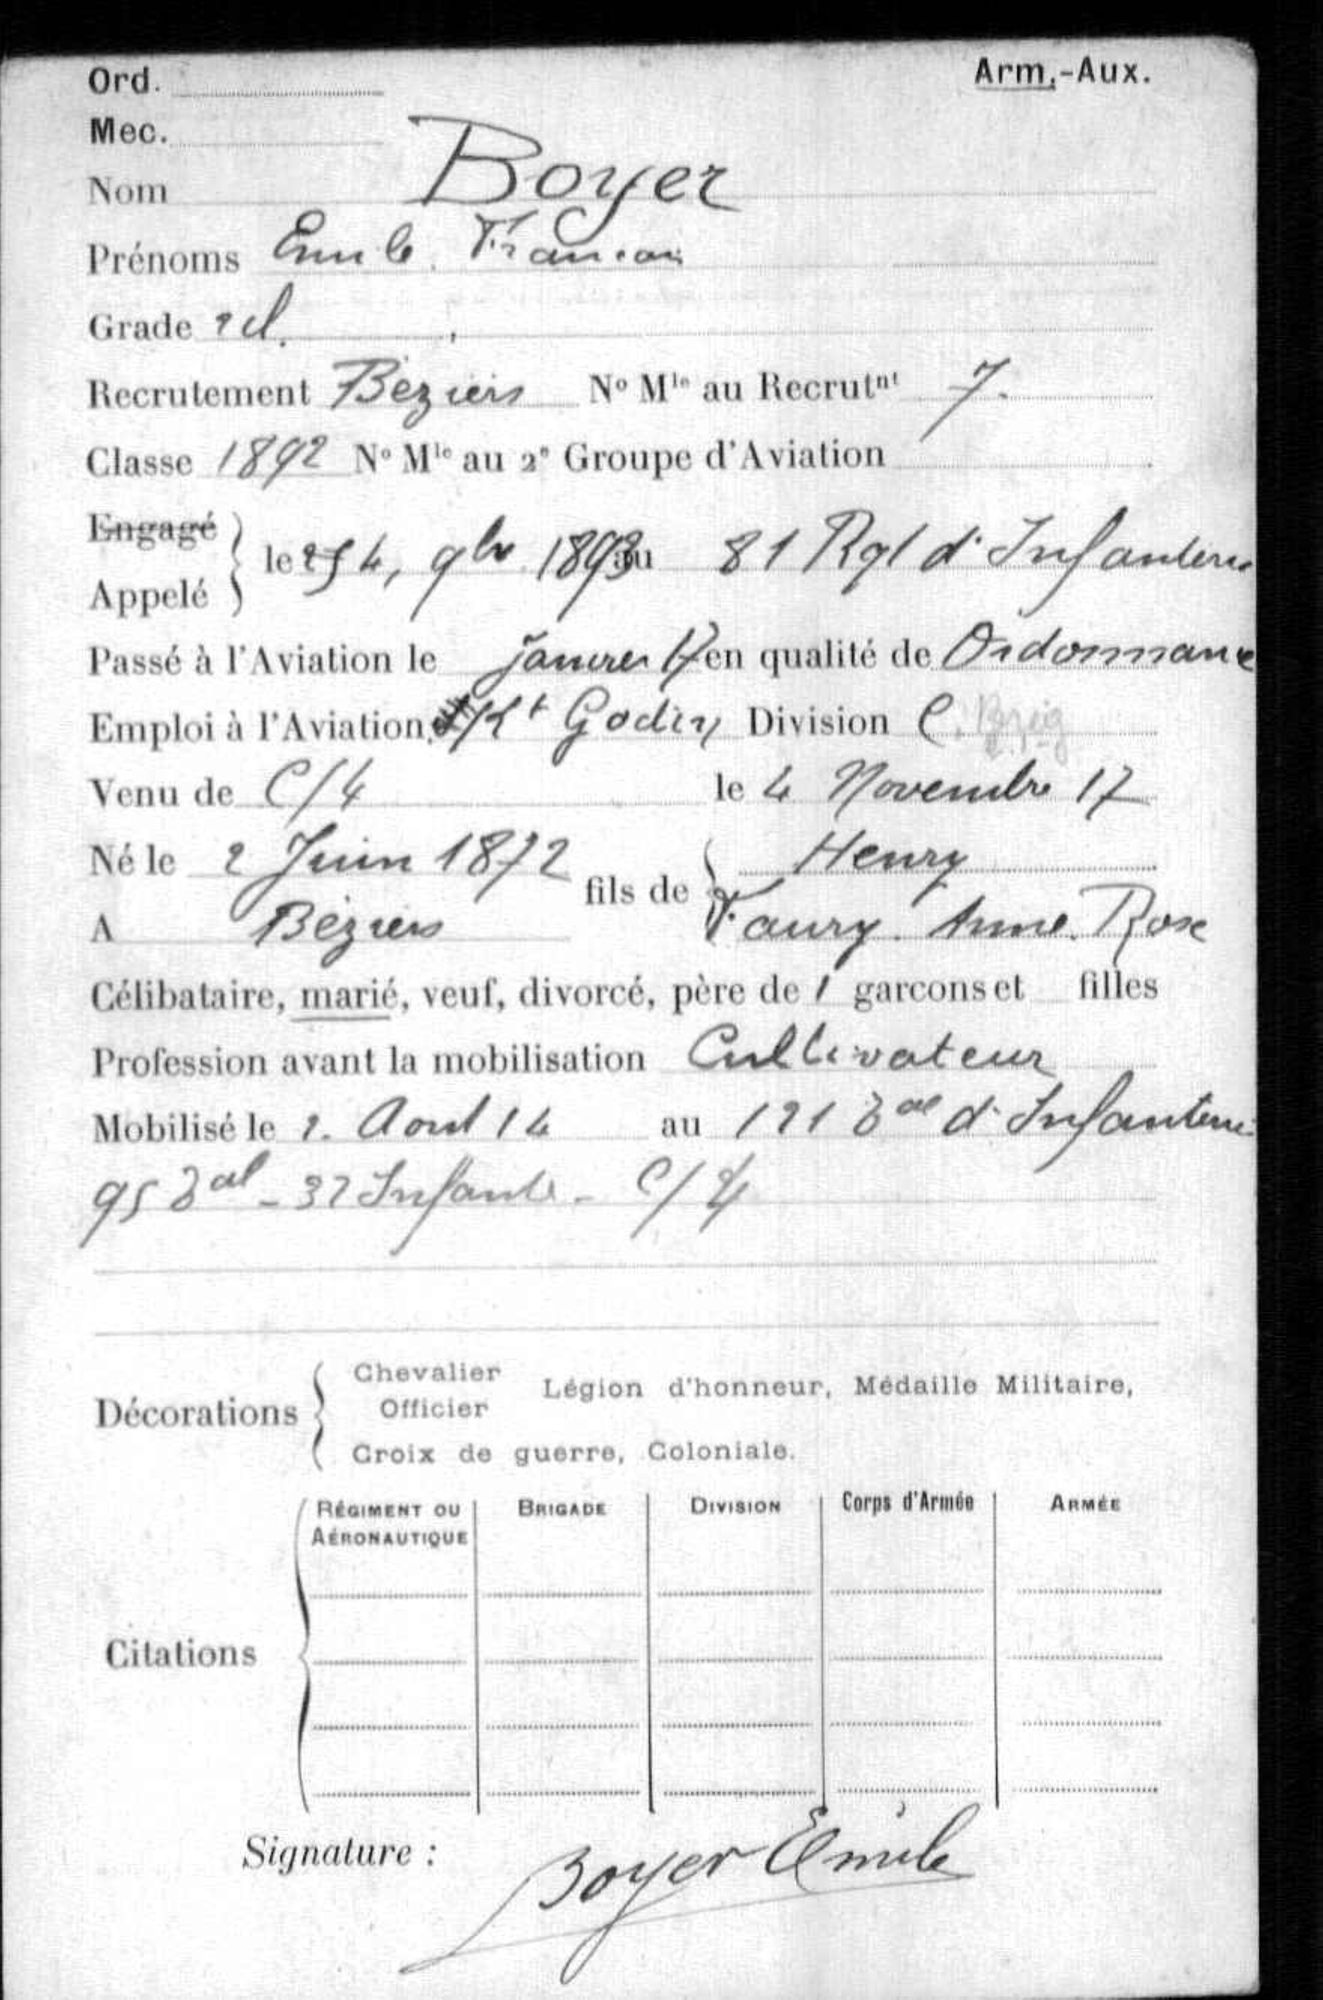 Ord.
Arm.-Aux.
Mec.
Nom Boyer
Prénoms Emile. Francois
Grade 2 cl.
Recrutement Béziers No Mle au Recrutnt 7.
Classe 1892 No Mle au 2e Groupe d'Aviation
Engagé
Appelé
le 4, 9bre 1893 au 81 Rgt d'Infanterie
Passé à l'Aviation le janvier 17 en qualité de Ordonnance
Emploi à l'Aviation Godin Division C.
Venu de C/4 le 4 Novembre 17
Né le 2 Juin 1872 fils de Henry
A Béziers Faury. Anne. Rose
Célibataire, marié, veuf, divorcé, père de 1 garcons et filles
Profession avant la mobilisation Cultivateur
Mobilisé le 2. Aout 14 au 121 d'Infanterie
95 - 32 Infante - C/4
Décorations
Chevalier
Officier
Légion d'honneur, Médaille Militaire,
Croix de guerre, Coloniale.
Citations
RÉGIMENT OU AÉRONAUTIQUE BRIGADE DIVISION Corps d'Armée ARMÉE
Signature : Boyer Emile